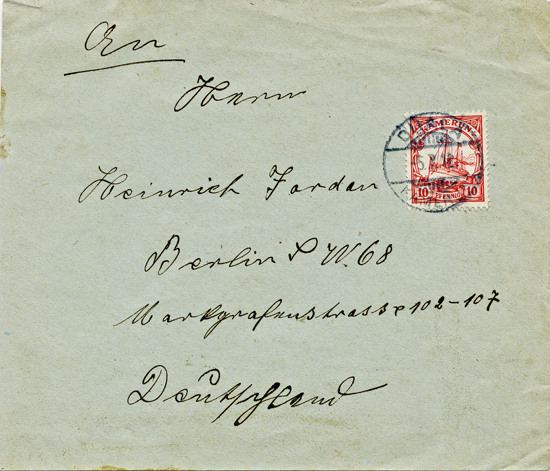 An
Herrn
Heinrich Jordan
Berlin S.W. 68
Markgrafenstrasse 102-107
Deutschland
KAMERUN
10 PFENNIG 10